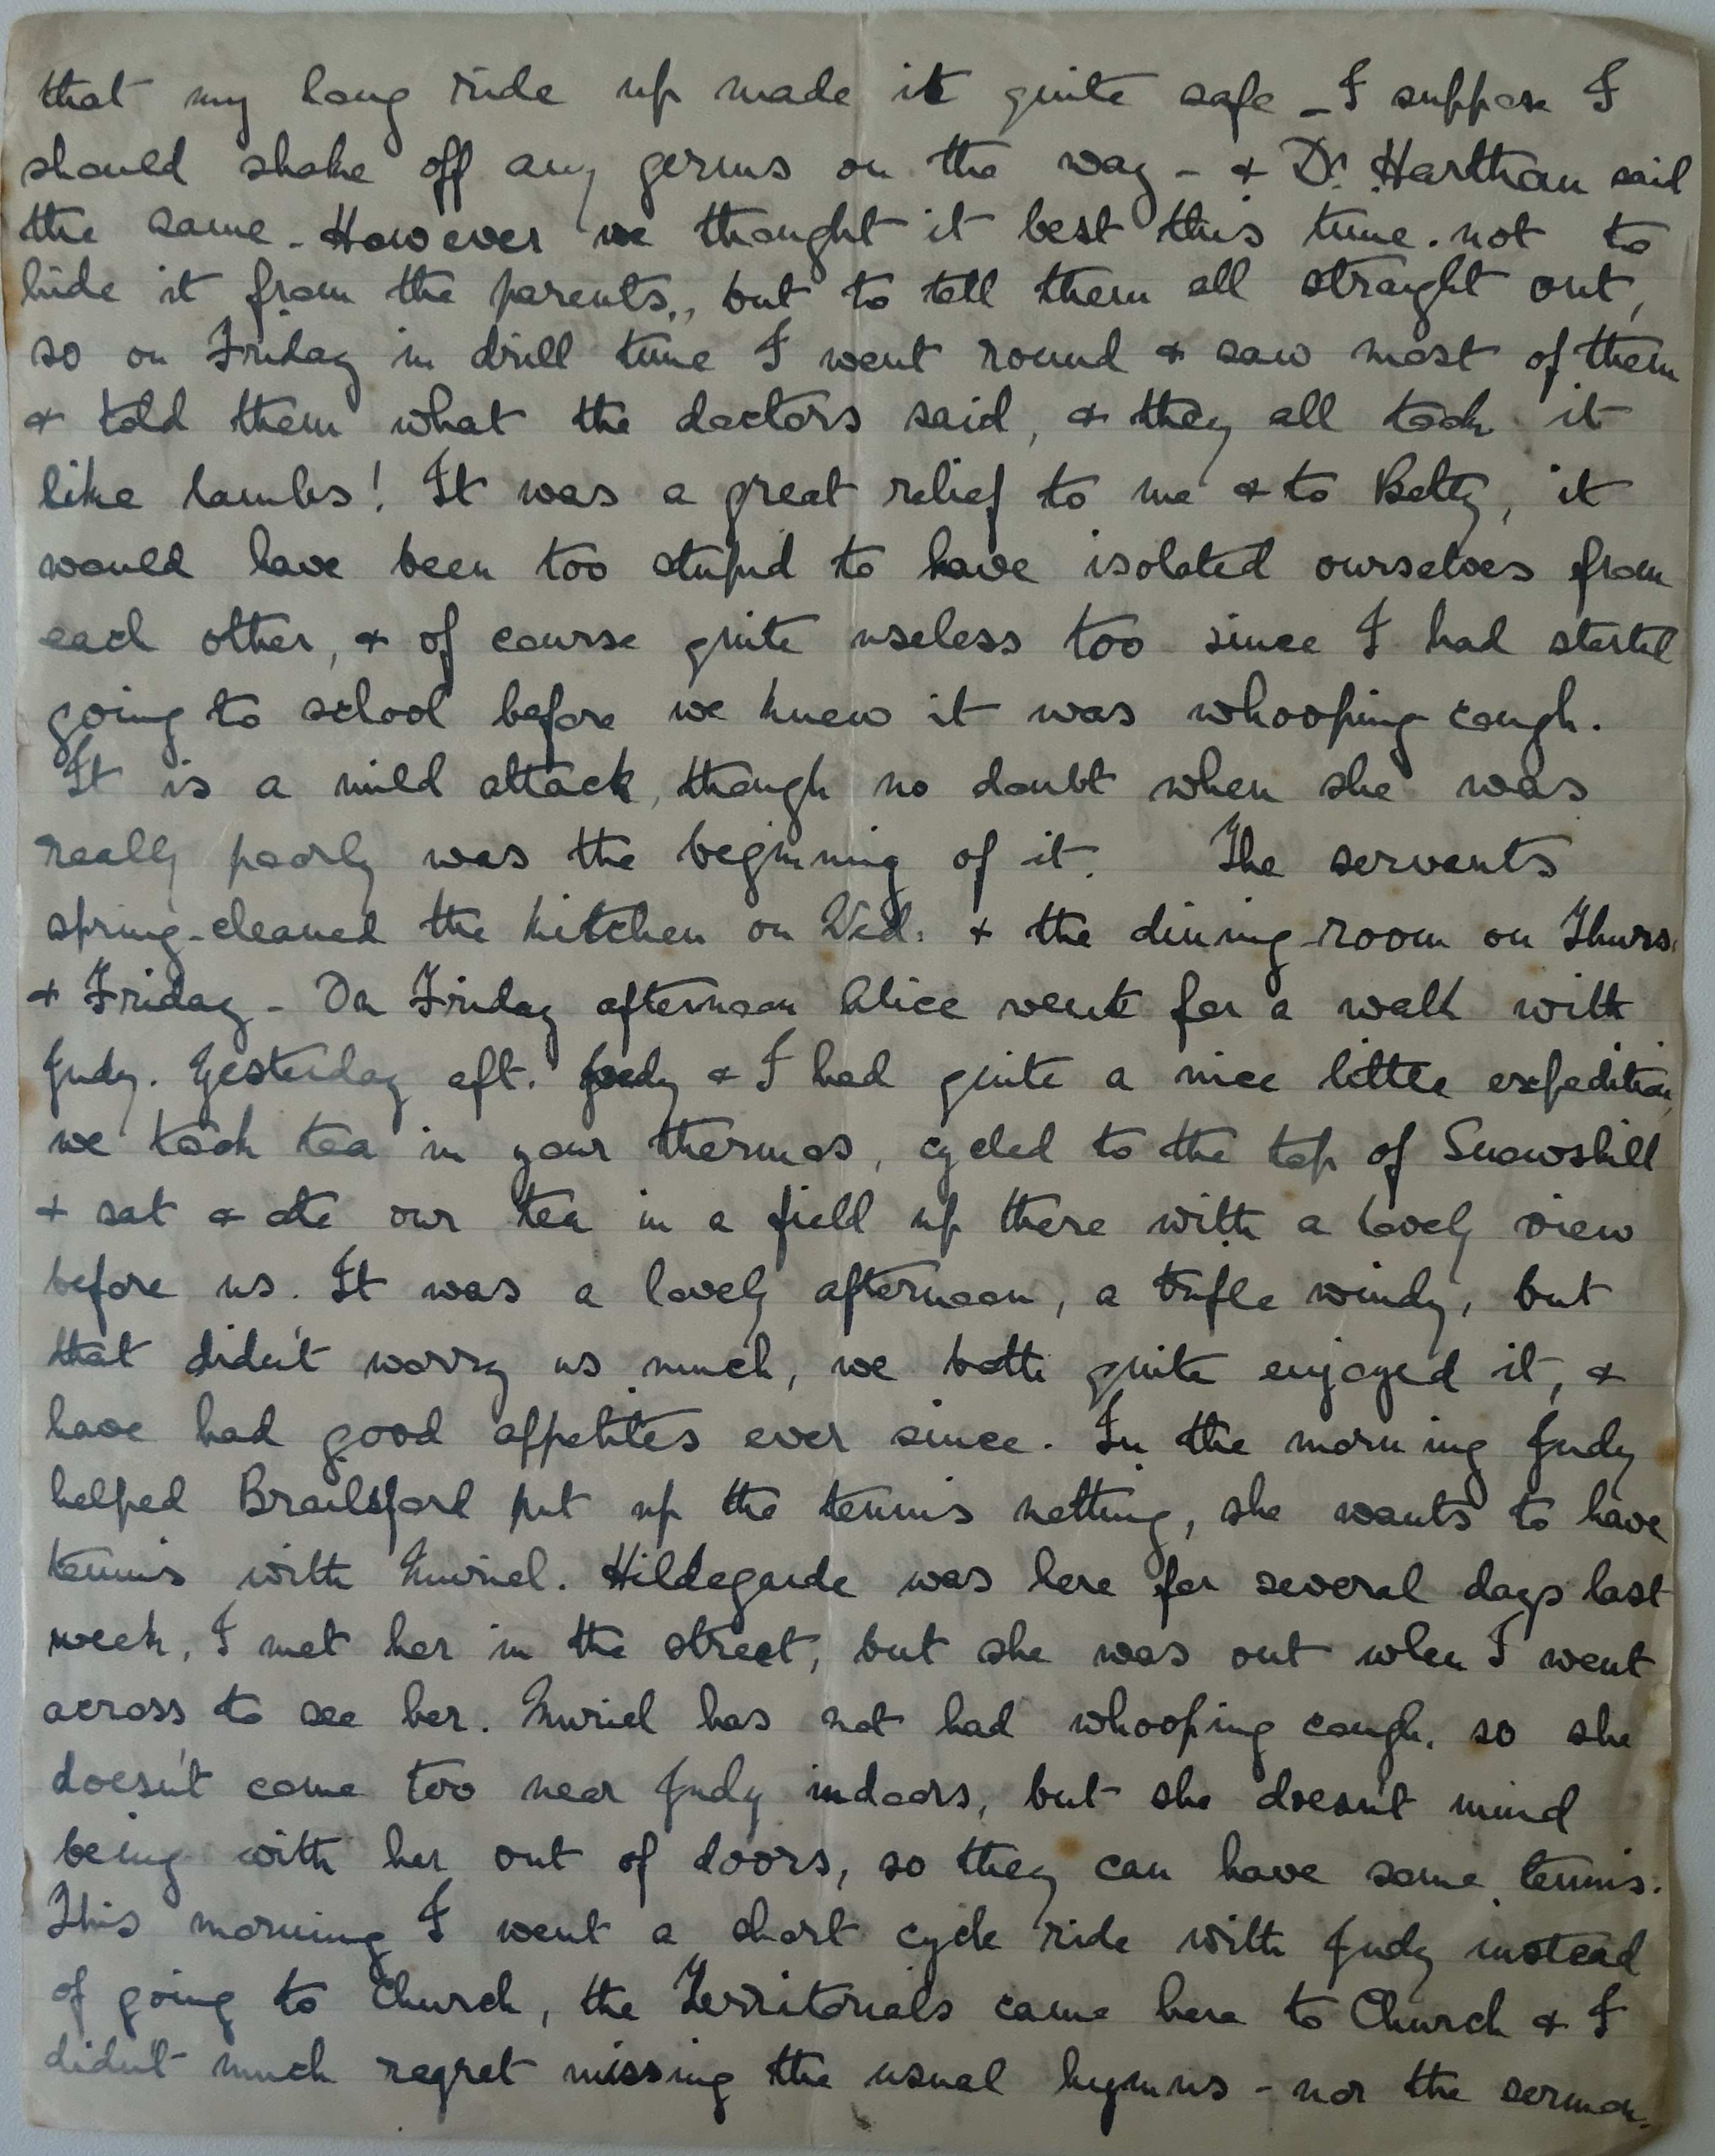 that my long ride up made it quite safe - I suppose I
should shake off any germs on the way - & Dr. Hartham said
the same. However we thought it best this time not to
hide it from the parents, but to tell them all straight out,
so on Friday in drill time I went round & saw most of them
& told them what the doctors said, & they all took it
like lambs! It was a great relief to me & to Betty, it
would have been too stupid to have isolated ourselves from
each other, & of course quite useless too since I had started
going to school before we knew it was whooping cough.
It is a mild attack, though no doubt when she was
really poorly was the beginning of it. The servants
spring-cleaned the kitchen on Wed. & the dining-room on Thurs.
& Friday - On Friday afternoon Alice went for a walk with
Judy. Yesterday aft. Judy & I had quite a nice little expedition,
we took tea in your thermos, cycled to the top of Snowshill
& sat & ate our tea in a field up there with a lovely view
before us. It was a lovely afternoon, a trifle windy, but
that didn't worry us much, we both quite enjoyed it, &
have had good appetites ever since. In the morning Judy
helped Brailsford put up the tennis netting, she wants to have
tennis with Muriel. Hildegarde was here for several days last
week, I met her in the street, but she was out when I went
across to see her. Muriel has not had whooping cough, so she
doesn't come too near Judy indoors, but she doesn't mind
being with her out of doors, so they can have some tennis.
This morning I went a short cycle ride with Judy instead
of going to Church, the Territorials came here to Church & I
didn't much regret missing the usual hymns - nor the sermon.